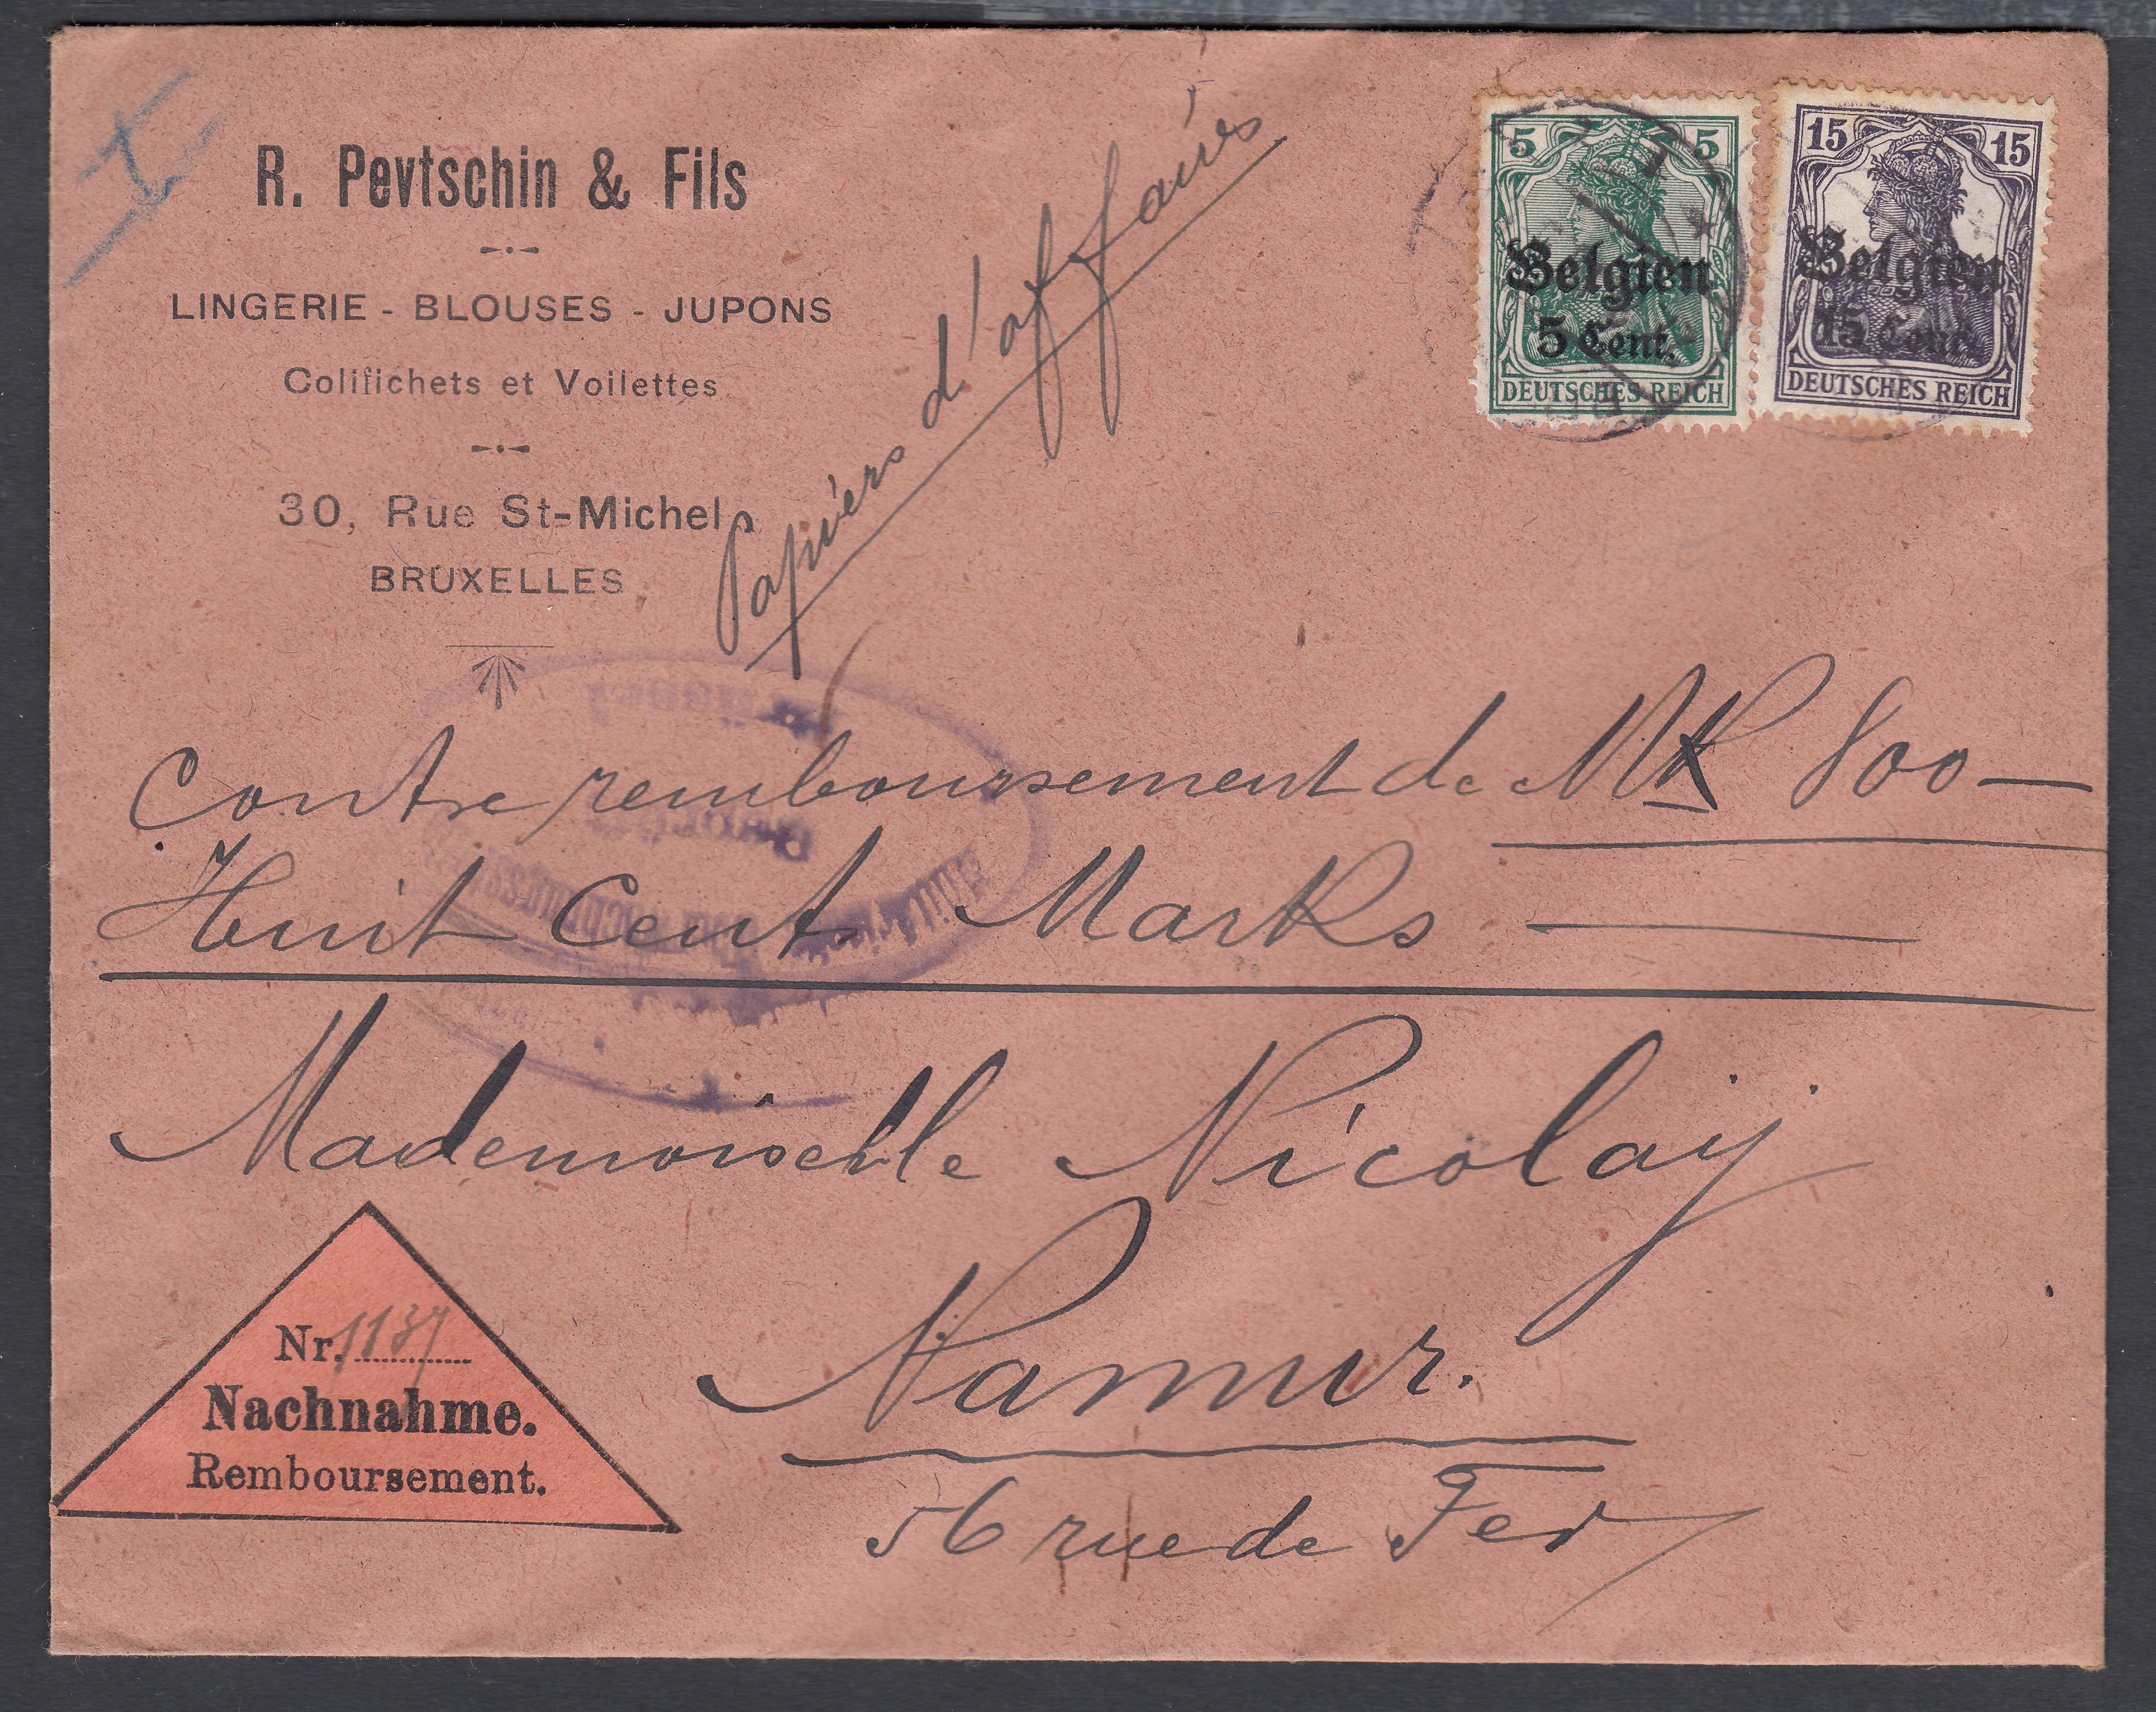 R. Pevtschin & Fils
LINGERIE - BLOUSES - JUPONS
Colifichets et Voilettes
30, Rue St-Michel
BRUXELLES
Papiers d'affaires
5 5
Belgien
5 Cent.
DEUTSCHES REICH
15 15
Belgien
15 Cent.
DEUTSCHES REICH
Contre remboursement de MK 800 —
Huit Cent Marks —
Mademoiselle Nicolaÿ
Namur.
56 rue de Fer
Nr. 1137
Nachnahme.
Remboursement.